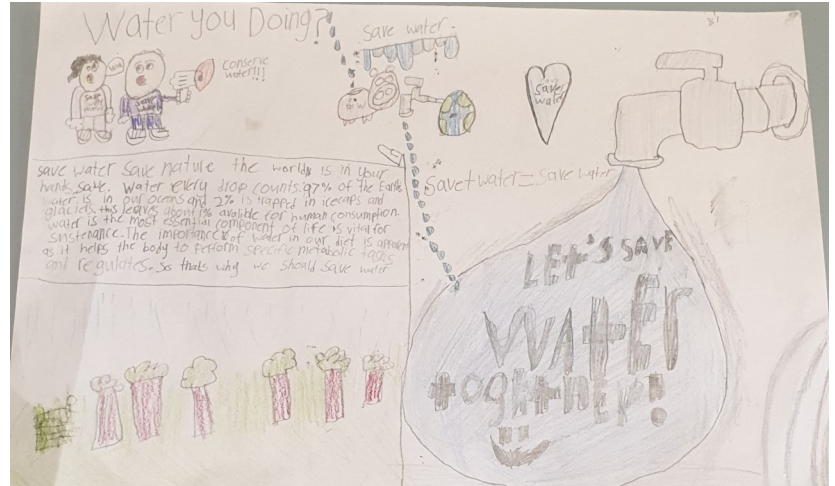 Water you Doing?
save water.
Conserve
water!!!
save
water
save water save nature the worlds is in your
hands save. water every drop counts. 97% of the Earths
water is in our oceans and 2% is trapped in icecaps and
glaciers. this leaves about 1% avalible for human consumption.
water is the most essential component of life is vital for
sustenance. The importance of water in our diet is apparent
as it helps the body to perform specific metabolic tasks
and regulates. So thats why we should save water
Save+water=save water
LEt'S SAVE
WAttEr
togEtHEr!